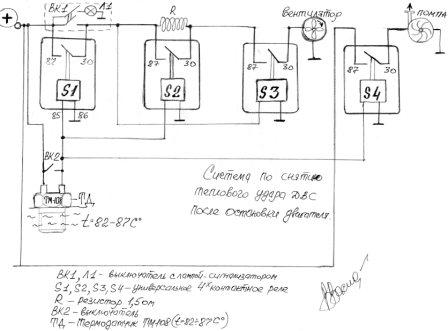 +
ВК1
Л1
R
Вентилятор
Помпа
87
30
87
30
87
30
87
30
S1
S2
S3
S4
85
86
ВК2
ТМ-108
ТД
t=82-87С°
Система по снятию
теплового удара ДВС
после остановки двигателя
ВК1, Л1 - выключатель с лампой-сигнализатором
S1, S2, S3, S4 - универсальное 4х контактное реле
R - резистор 1,5 от
ВК2 - выключатель
ТД - Термодатчик ТМ-108 (t=82÷87С°)